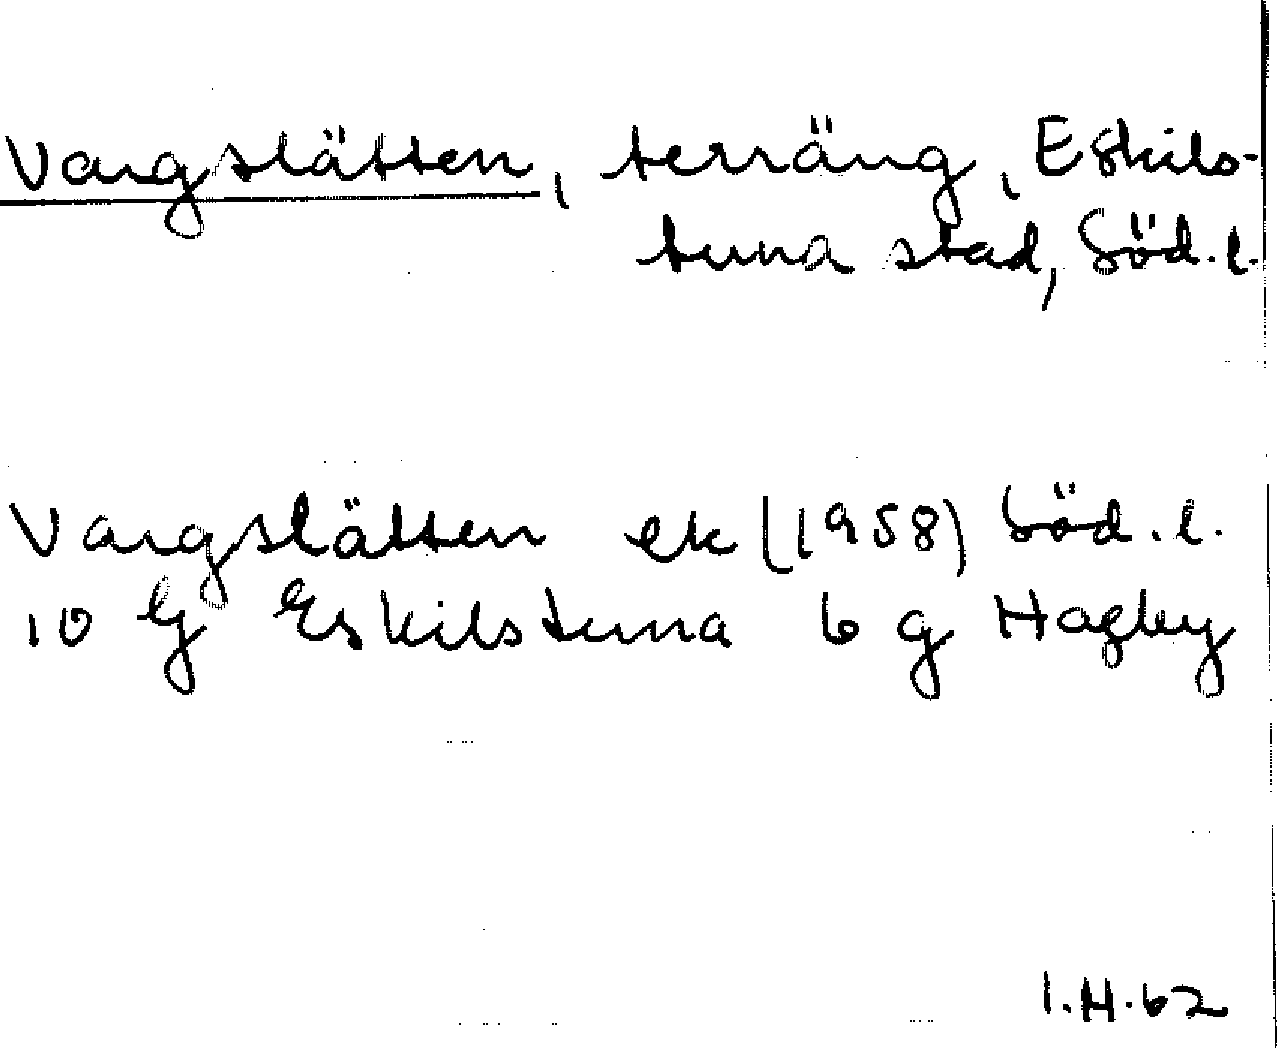 Vargslätten, terräng, Eskils-
tuna stad, Söd.l.
Vargslätten ek (1958) Söd.l.
10 G Eskilstuna 6 g Hagby
I.H.62